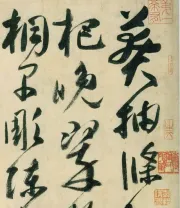 莽抽條
杷晚翠
桐早彫陳